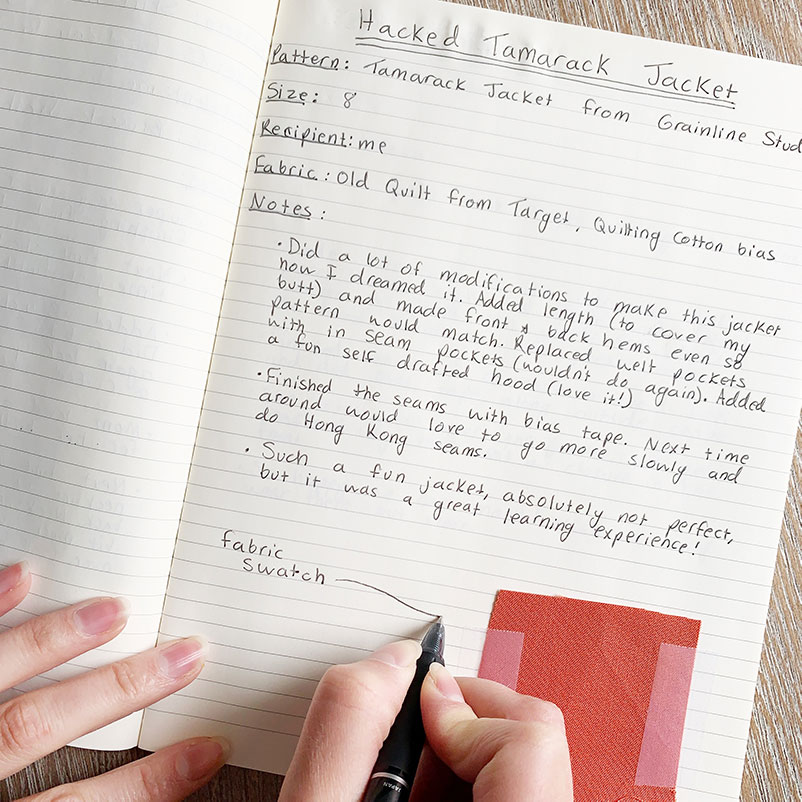 Hacked Tamarack Jacket
Pattern: Tamarack Jacket from Grainline Stud
Size: 8
Recipient: me
Fabric: Old Quilt from Target, Quilting Cotton bias
Notes:
• Did a lot of modifications to make this jacket
how I dreamed it. Added length (to cover my
butt) and made front & back hems even so
pattern would match. Replaced welt pockets
with in seam pockets (wouldn't do again). Added
a fun self drafted hood (love it!)
• Finished the seams with bias tape. Next time
around would love to go more slowly and
do Hong Kong seams.
• Such a fun jacket, absolutely not perfect,
but it was a great learning experience!
fabric
swatch
JAPAN